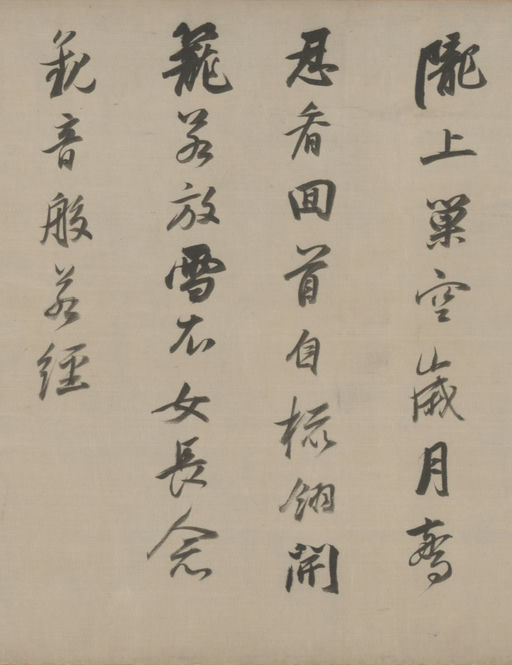 隴上巢空歲月驚
忍看囬首自梳翎開
籠若放雪衣女長念
觀音般若經